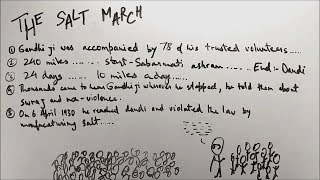 THE SALT MARCH
① Gandhiji was accompanied by 78 of his trusted volunteers.....
② 240 miles ....... start - Sabarmati ashram ....... End :- Dandi
③ 24 days ...... 10 miles a day.....
④ Thousands came to hear Gandhiji wherever he stopped, he told them about
swaraj and non-violence.
⑤ On 6 April 1930 he reached dandi and violated the law by
manufacturing salt.....